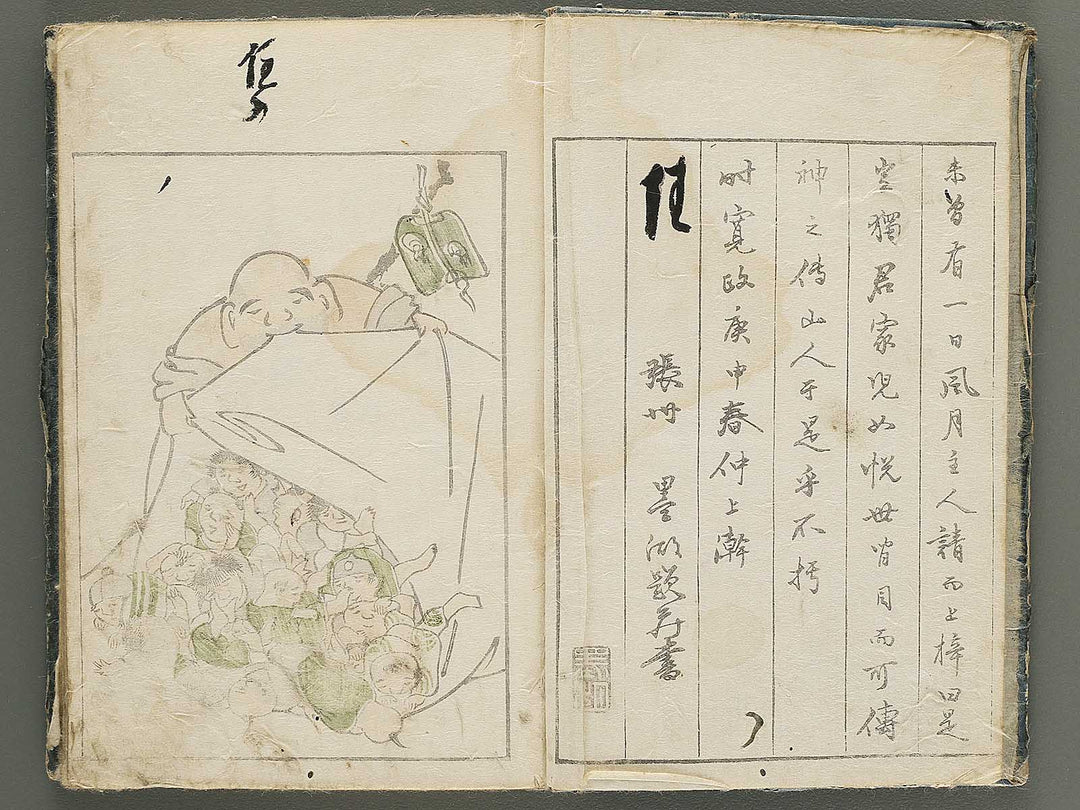 未曽有一日風月主人請而上梓曰是
豈獨君家児女悦世皆目而可傳
神之傳山人于是乎不拒
時寛政庚申春仲上澣
張州 墨湖題并書